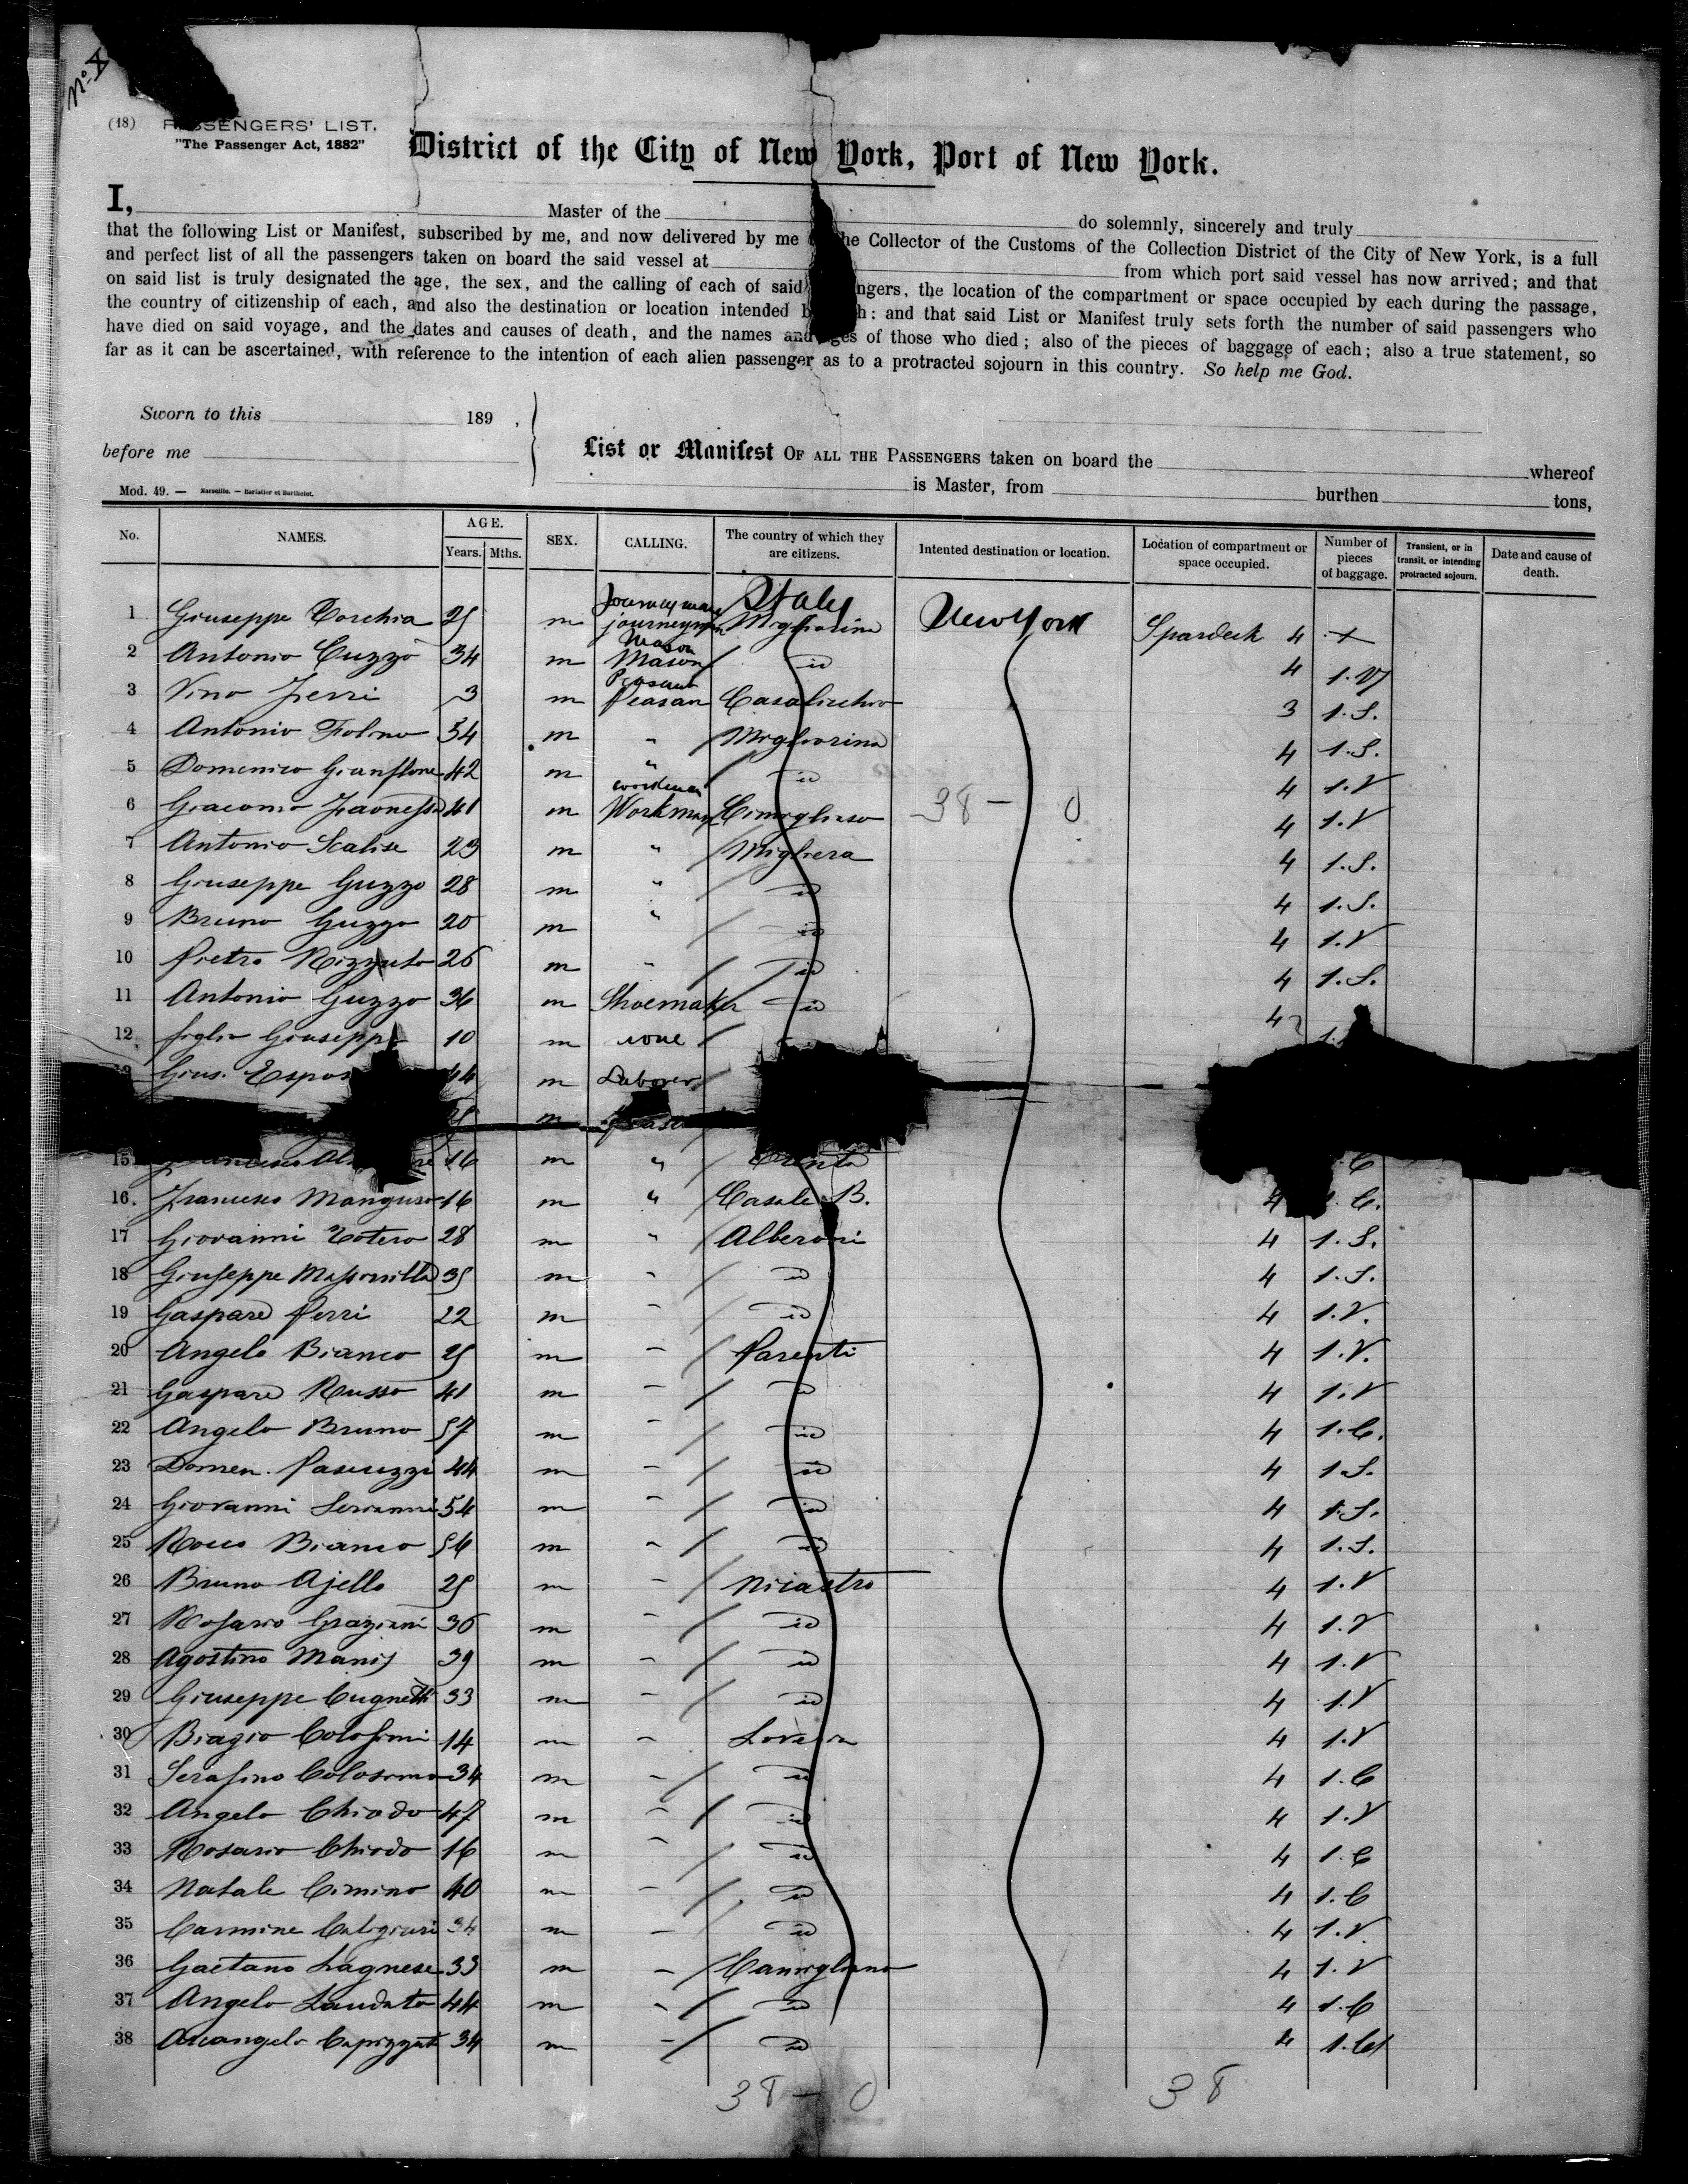 No X
(18) PASSENGERS' LIST.
"The Passenger Act, 1882"
District of the City of New York, Port of New York.
I, Master of the do solemnly, sincerely and truly
that the following List or Manifest, subscribed by me, and now delivered by me he Collector of the Customs of the Collection District of the City of New York, is a full
and perfect list of all the passengers taken on board the said vessel at from which port said vessel has now arrived; and that
on said list is truly designated the age, the sex, and the calling of each of said ngers, the location of the compartment or space occupied by each during the passage,
the country of citizenship of each, and also the destination or location intended b h: and that said List or Manifest truly sets forth the number of said passengers who
have died on said voyage, and the dates and causes of death, and the names and ges of those who died; also of the pieces of baggage of each; also a true statement, so
far as it can be ascertained, with reference to the intention of each alien passenger as to a protracted sojourn in this country. So help me God.
Sworn to this 189 ,
before me
List or Manifest OF ALL THE PASSENGERS taken on board the whereof
is Master, from burthen tons,
Mod. 49. — Marseille. — Barlatier et Barthelet.
No. NAMES. AGE. Years. Mths. SEX. CALLING. The country of which they are citizens. Intented destination or location. Location of compartment or space occupied. Number of pieces of baggage. Transient, or in transit, or intending protracted sojourn. Date and cause of death.
Journeyman Italy
1 Giuseppe Torchia 25 m journeyman Migliorina New York Spardeck 4 x
Mason
2 Antonio Cuzzo 34 m Mason id 4 1.V
Peasant
3 Vino Ferri 3 m Peasan Casalicchio 3 1.S.
4 Antonio Folino 34 m " Migliorina 4 1.S.
5 Domenico 42 m " id 4 1.V
workman
6 Giacomo 41 m Workman Cimigliano 38 — 0 4 1.V
7 Antonio Scalise 23 m " Migliera 4 1.S.
8 Giuseppe Guzzo 28 m " id 4 1.S.
9 Bruno Guzzo 20 m " id 4 1.V
10 Pietro Rizzuto 26 m " id 4 1.S.
11 Antonio Guzzo 36 m Shoemaker id 4
12 figlio Giuseppe 10 m none 1.
Gius. Espos 44 m Laborer
m
15 16 m " C
16. Francesco Manguso 16 m " Casale B. 4 C.
17 Giovanni Totero 28 m " Alberoni 4 1.S.
18 Giuseppe 35 m " id 4 1.S.
19 Gaspare Perri 22 m " id 4 1.V.
20 Angelo Bianco 25 m " Parenti 4 1.V.
21 Gaspare Russo 41 m " id 4 1.V
22 Angelo Bruno 57 m " id 4 1.C.
23 Domen. Pascuzzi 44 m " id 4 1.S.
24 Giovanni 54 m " id 4 1.S.
25 Rocco Bianco 56 m " id 4 1.S.
26 Bruno Ajello 25 m " Nicastro 4 1.V
27 Rosario Graziani 36 m " id 4 1.V
28 Agostino Manis 39 m " id 4 1.V
29 Giuseppe Cugnetti 33 m " id 4 1.V
30 Biagio Colosimi 14 m " 4 1.V
31 Serafino Colosimo 34 m " id 4 1.C
32 Angelo Chiodo 47 m " id 4 1.V
33 Rosario Chiodo 16 m " id 4 1.C
34 Natale Cimino 40 m " id 4 1.C
35 Carmine Caligiuri 34 m " id 4 1.V.
36 Gaetano Lagnese 33 m " Camigliano 4 1.V
37 Angelo Laudato 44 m " id 4 1.C
38 Arcangelo 34 m " id 4 1.C
38 — 0 38